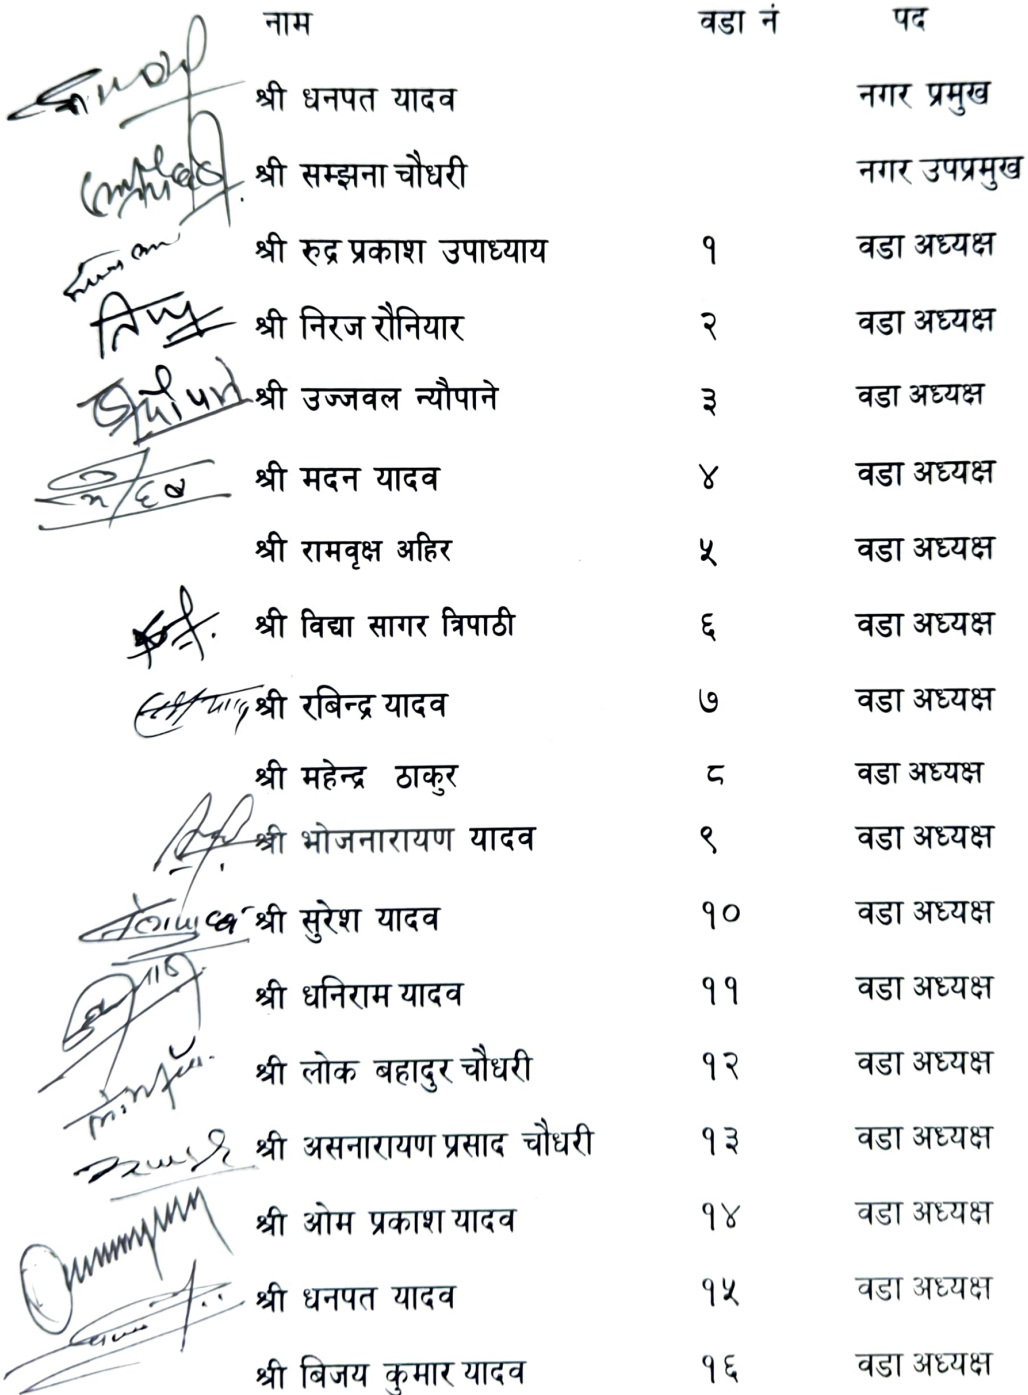 नाम वडा नं पद
श्री धनपत यादव नगर प्रमुख
श्री सम्झना चौधरी नगर उपप्रमुख
श्री रुद्र प्रकाश उपाध्याय १ वडा अध्यक्ष
श्री निरज रौनियार २ वडा अध्यक्ष
श्री उज्जवल न्यौपाने ३ वडा अध्यक्ष
श्री मदन यादव ४ वडा अध्यक्ष
श्री रामवृक्ष अहिर ५ वडा अध्यक्ष
श्री विद्या सागर त्रिपाठी ६ वडा अध्यक्ष
श्री रबिन्द्र यादव ७ वडा अध्यक्ष
श्री महेन्द्र ठाकुर ८ वडा अध्यक्ष
श्री भोजनारायण यादव ९ वडा अध्यक्ष
श्री सुरेश यादव १० वडा अध्यक्ष
श्री धनिराम यादव ११ वडा अध्यक्ष
श्री लोक बहादुर चौधरी १२ वडा अध्यक्ष
श्री असनारायण प्रसाद चौधरी १३ वडा अध्यक्ष
श्री ओम प्रकाश यादव १४ वडा अध्यक्ष
श्री धनपत यादव १५ वडा अध्यक्ष
श्री बिजय कुमार यादव १६ वडा अध्यक्ष